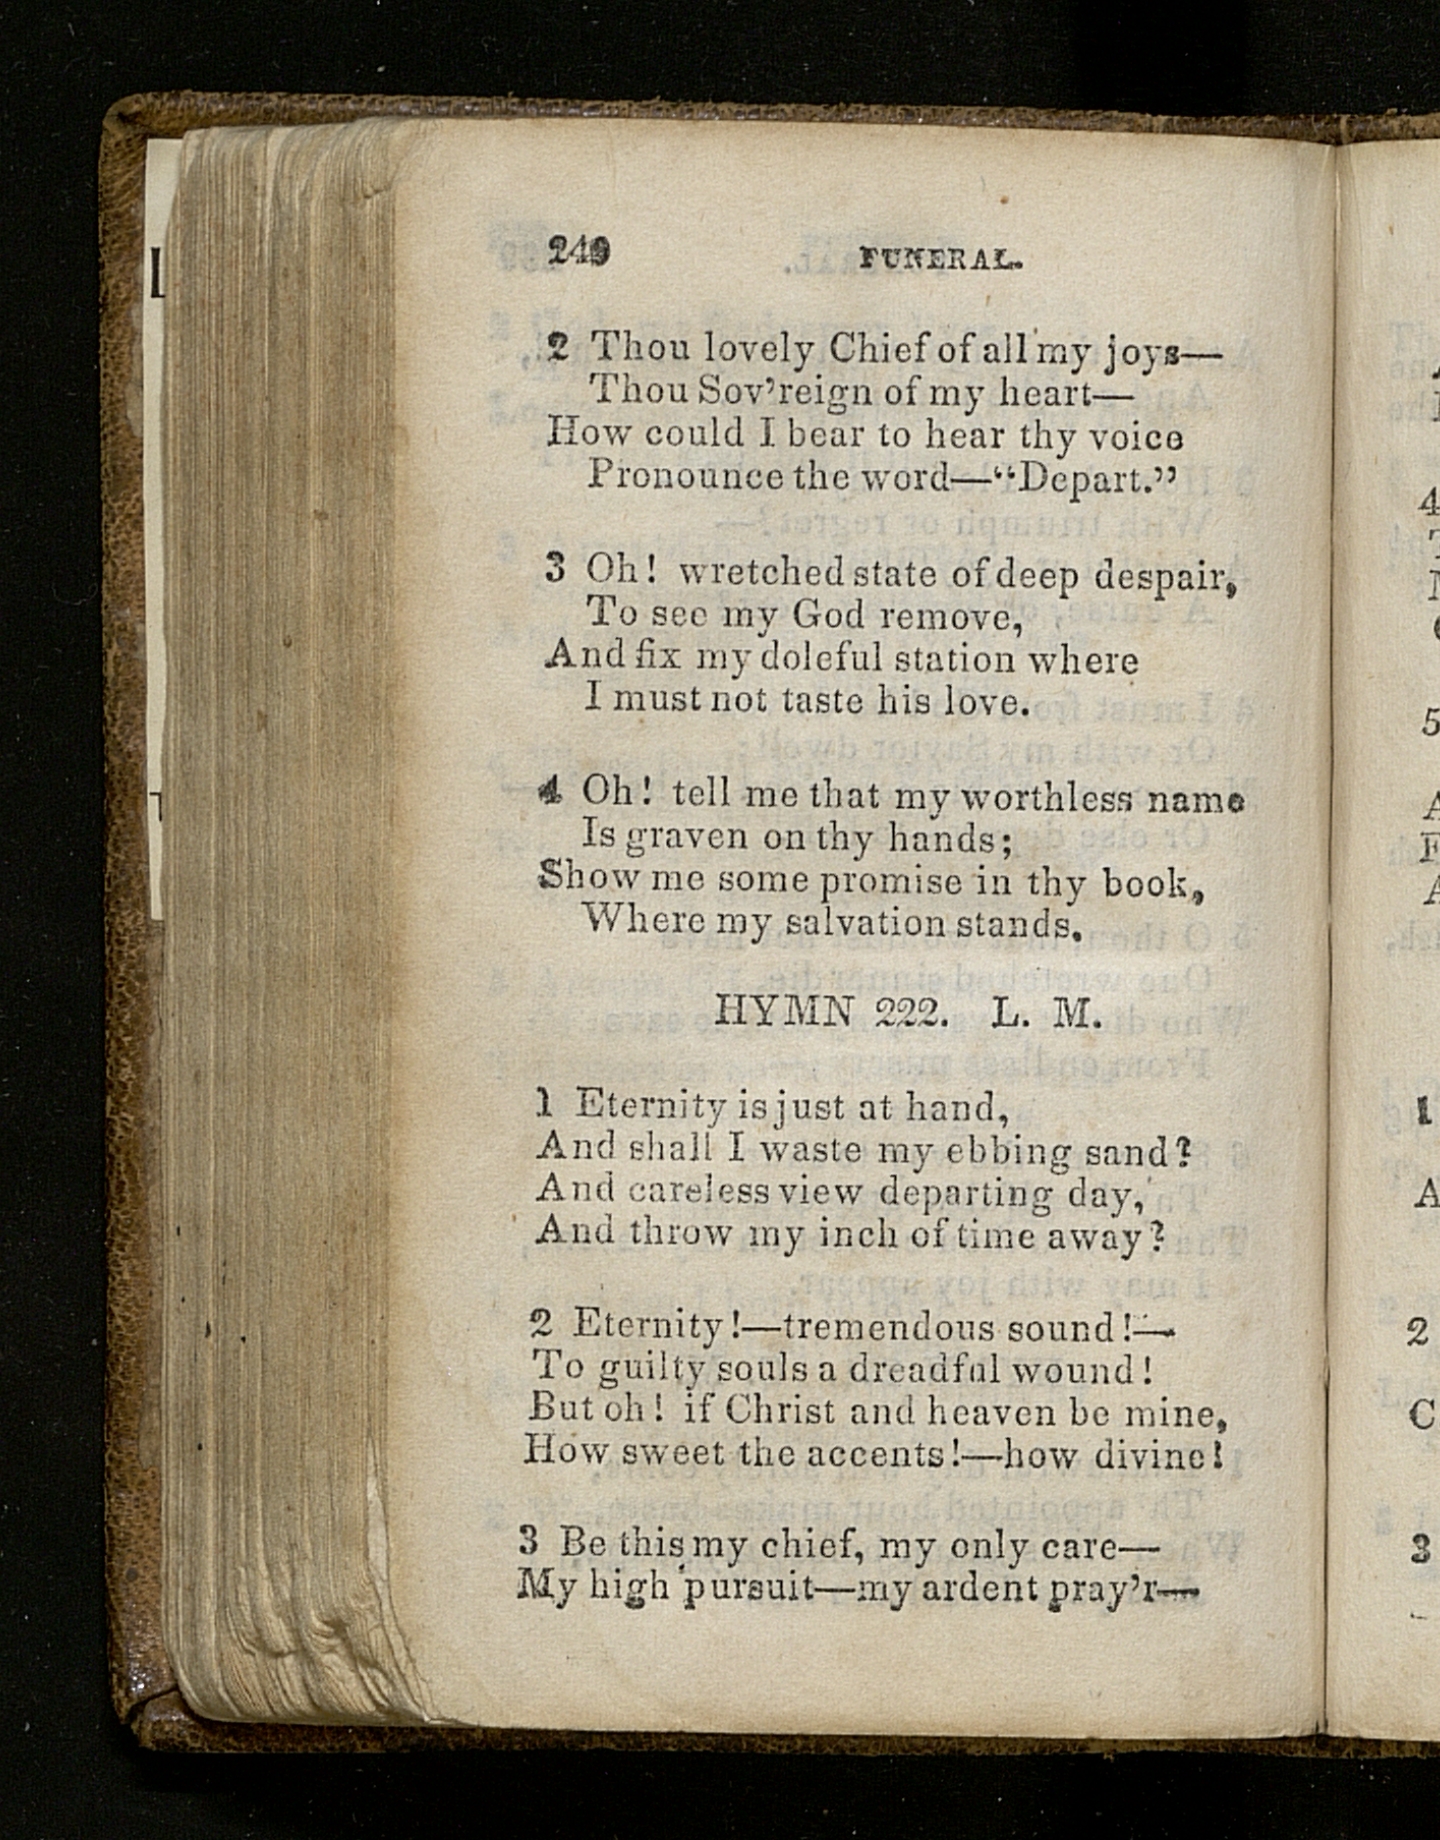 249 FUNERAL.
2 Thou lovely Chief of all my joys—
Thou Sov'reign of my heart—
How could I bear to hear thy voice
Pronounce the word—"Depart."
3 Oh! wretched state of deep despair,
To see my God remove,
And fix my doleful station where
I must not taste his love.
4 Oh! tell me that my worthless name
Is graven on thy hands;
Show me some promise in thy book,
Where my salvation stands.
HYMN 222. L. M.
1 Eternity is just at hand,
And shall I waste my ebbing sand?
And careless view departing day,
And throw my inch of time away?
2 Eternity!—tremendous sound!—
To guilty souls a dreadful wound!
But oh! if Christ and heaven be mine,
How sweet the accents!—how divine!
3 Be this my chief, my only care—
My high pursuit—my ardent pray'r—